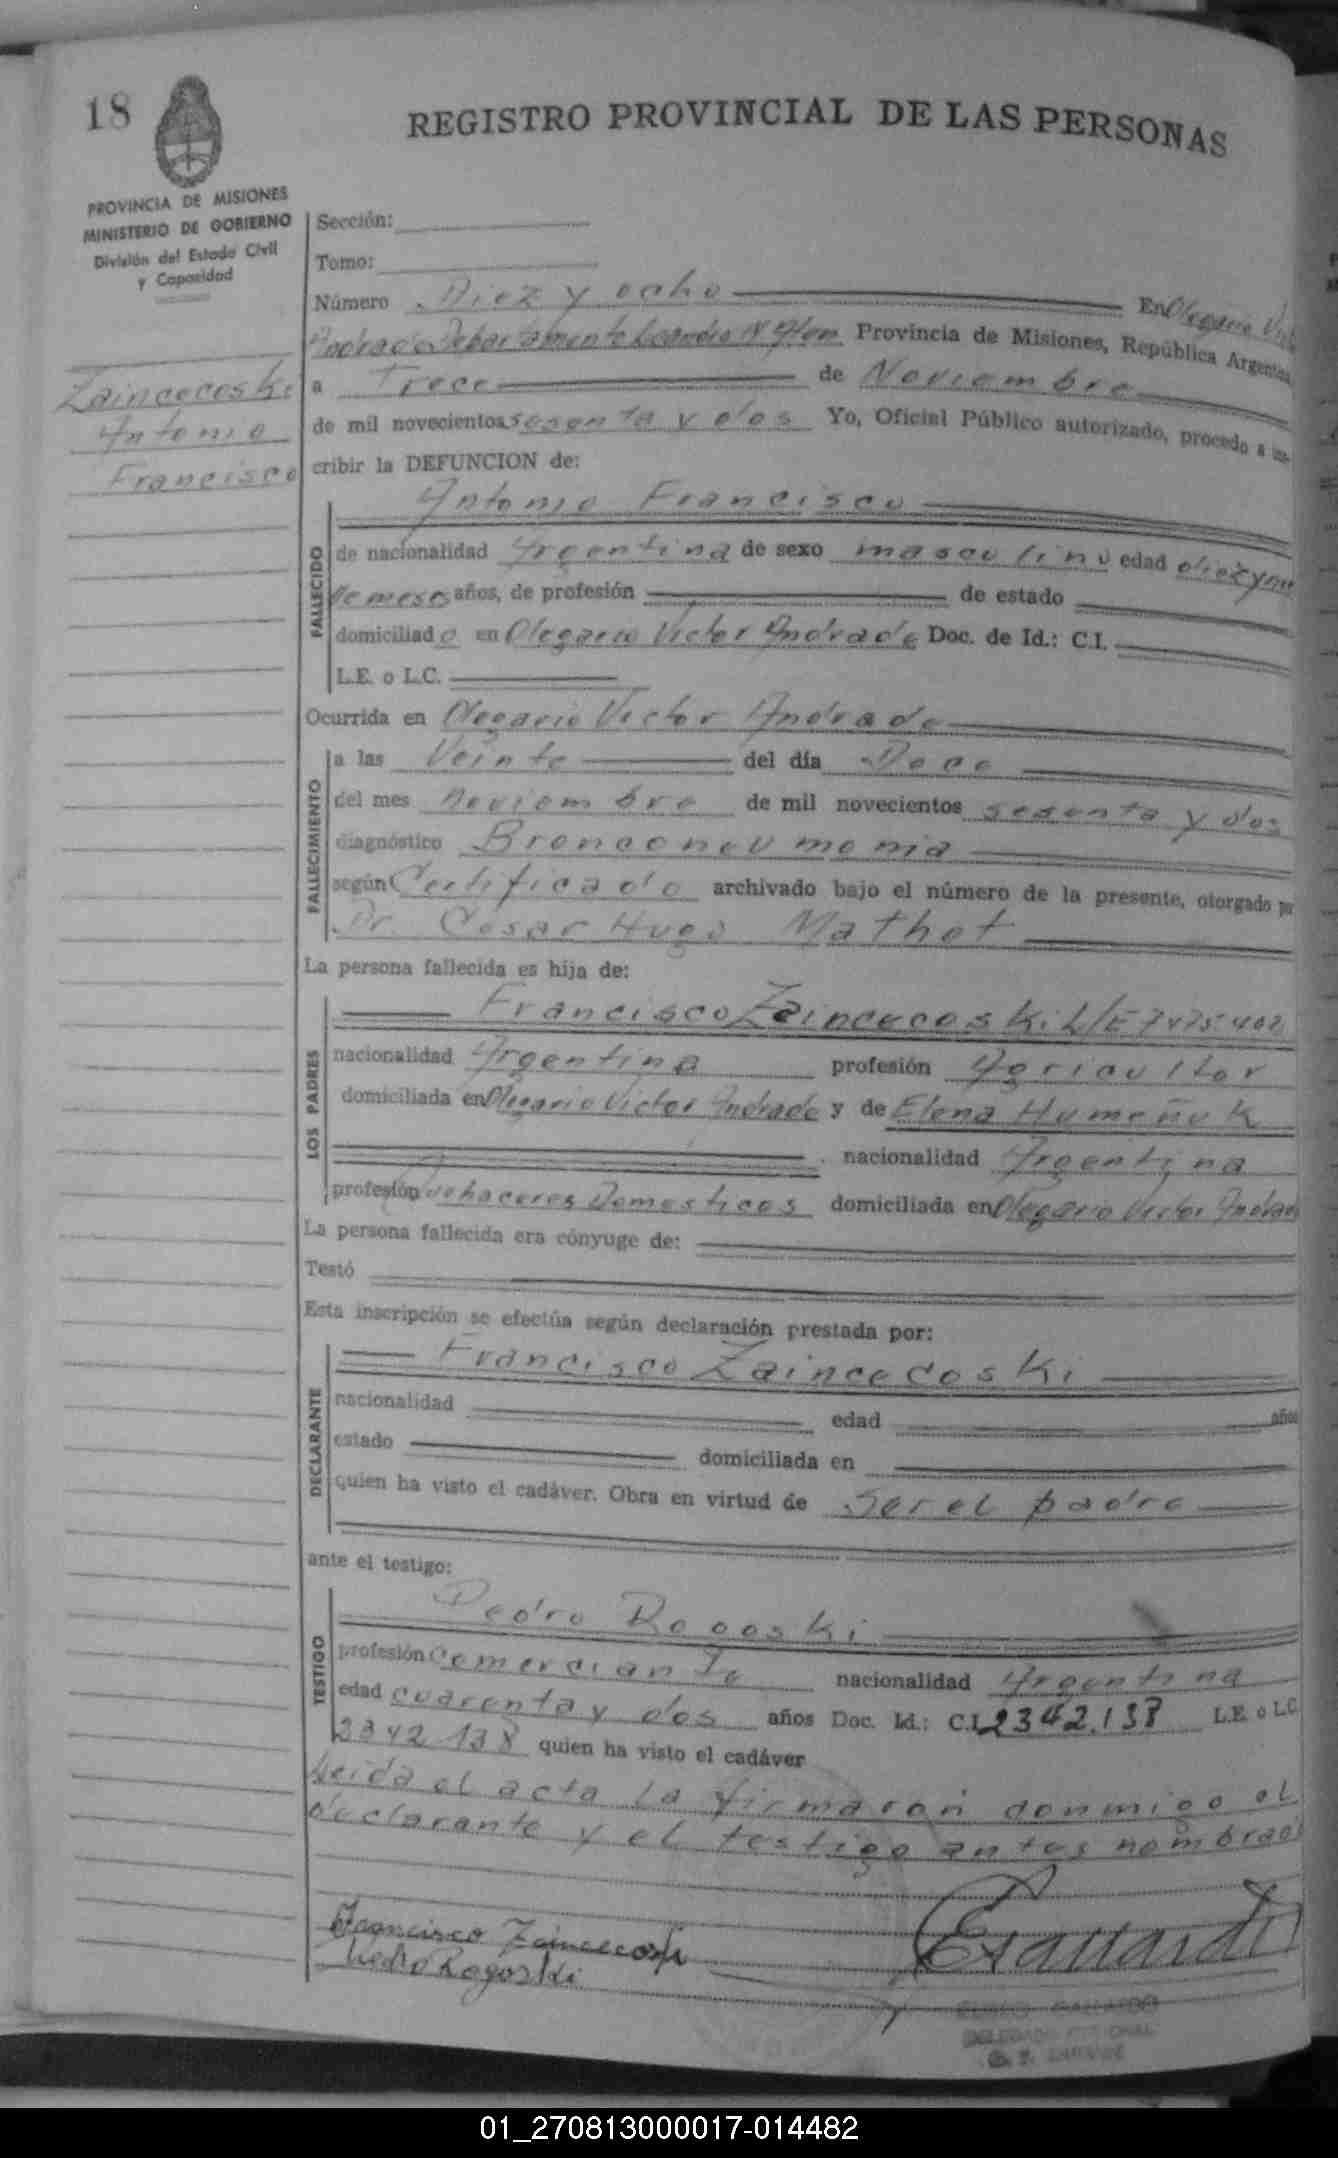 18
REGISTRO PROVINCIAL DE LAS PERSONAS
PROVINCIA DE MISIONES
MINISTERIO DE GOBIERNO
División del Estado Civil
y Capacidad
Zaincocoski
Antonio
Francisco
Sección:
Tomo:
Número Diez y ocho En Olegario Victor
Andrade Departamento Leandro N Alem Provincia de Misiones, República Argentina
a Trece de Noviembre
de mil novecientos sesenta y dos Yo, Oficial Público autorizado, procedo a ins-
cribir la DEFUNCION de:
Antonio Francisco
FALLECIDO
de nacionalidad Argentina de sexo masculino edad diezynu
ve meses años, de profesión de estado
domiciliado en Olegario Victor Andrade Doc. de Id.: C.I.
L.E. o L.C.
Ocurrida en Olegario Victor Andrade
FALLECIMIENTO
a las Veinte del día Doce
del mes noviembre de mil novecientos sesenta y dos
diagnóstico Bronconeumonia
según Certificado archivado bajo el número de la presente, otorgado por
Dr. Cesar Hugo Mathot
La persona fallecida es hija de:
LOS PADRES
Francisco Zaincocoski L/E 7475402
nacionalidad Argentina profesión Agricultor
domiciliada en Olegario Victor Andrade y de Elena Humeñuk
nacionalidad Argentina
profesión Quehaceres Domesticos domiciliada en Olegario Victor Andrade
La persona fallecida era cónyuge de:
Testó
Esta inscripción se efectúa según declaración prestada por:
DECLARANTE
Francisco Zaincocoski
nacionalidad edad años
estado domiciliada en
quien ha visto el cadáver. Obra en virtud de Ser el padre
ante el testigo:
TESTIGO
Pedro Rogoski
profesión Comerciante nacionalidad Argentina
edad cuarenta y dos años Doc. Id.: C.I. 2342.138 L.E. o L.C.
2342138 quien ha visto el cadáver
Leida el acta la firmaron conmigo el
declarante y el testigo antes nombrado
Francisco Zaincocoski
Pedro Rogoski
GALLARDO
01_270813000017-014482